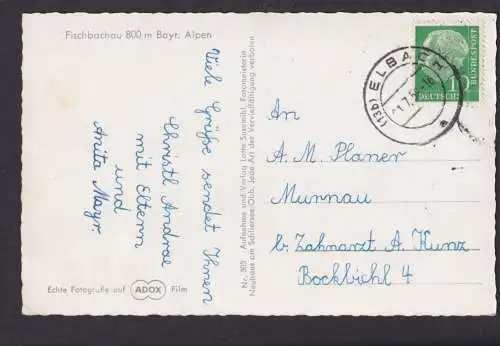 Fischbachau 800 m Bayr. Alpen
Viele Grüße sendet Ihnen
Christl Andrae
mit Eltern
und
Anita Mayr
Echte Fotografie auf ADOX Film
Nr. 303 Aufnahme und Verlag Lotte Susemihl, Fotomeisterin
Neuhaus am Schliersee-Obb. Jede Art der Vervielfältigung verboten
(13b) ELBACH
DEUTSCHE
BUNDESPOST
An
A. M. Planer
Murnau
b. Zahnarzt A. Kunz
Bockbichl 4